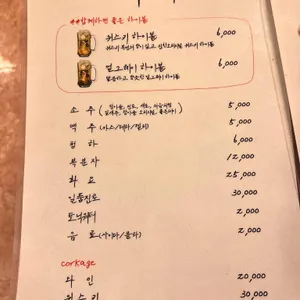 **함께하면 좋은 하이볼
위스키 하이볼 6,000
얼그레이 하이볼 6,000
소주 5,000
맥주 (카스/테라/켈리) 5,000
청하 6,000
복분자 12,000
화요 25,000
일품진로 30,000
토닉워터 2,000
음료 (사이다/콜라) 2,000
corkage
와인 20,000
위스키 30,000